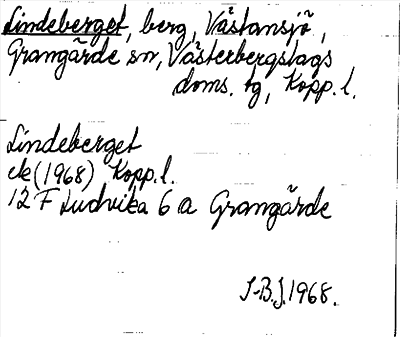 Lindeberget, berg, Västansjö,
Grangärde sn, Västerbergslags
doms. tg, Kopp. l.
Lindeberget
ek (1968) Kopp. l.
12 F Ludvika 6 a Grangärde
J-B.J. 1968.